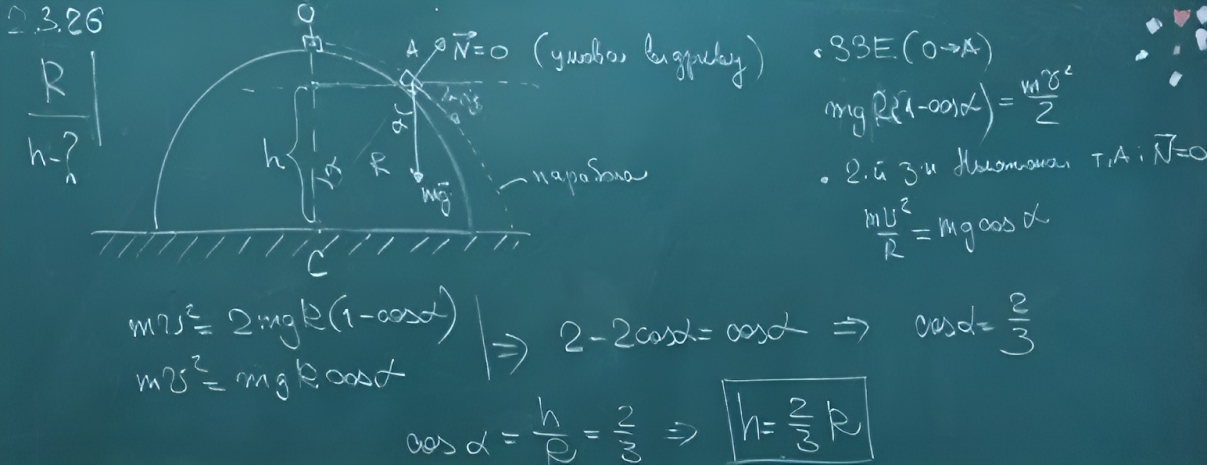 2.3.26
R
h-?
O
A N⃗=0 (умова відриву)
α
h
α
R
mg⃗
парабола
C
• ЗЗЕ (O→A)
mgR(1-cosα) = mv²/2
• 2-й з-н Ньютона т. A; N⃗=0
mv²/R = mg cos α
mv² = 2mgR(1-cosα)
mv² = mgR cosα
⇒ 2-2cosα = cosα ⇒ cosα = 2/3
cos α = h/R = 2/3 ⇒ h = 2/3 R